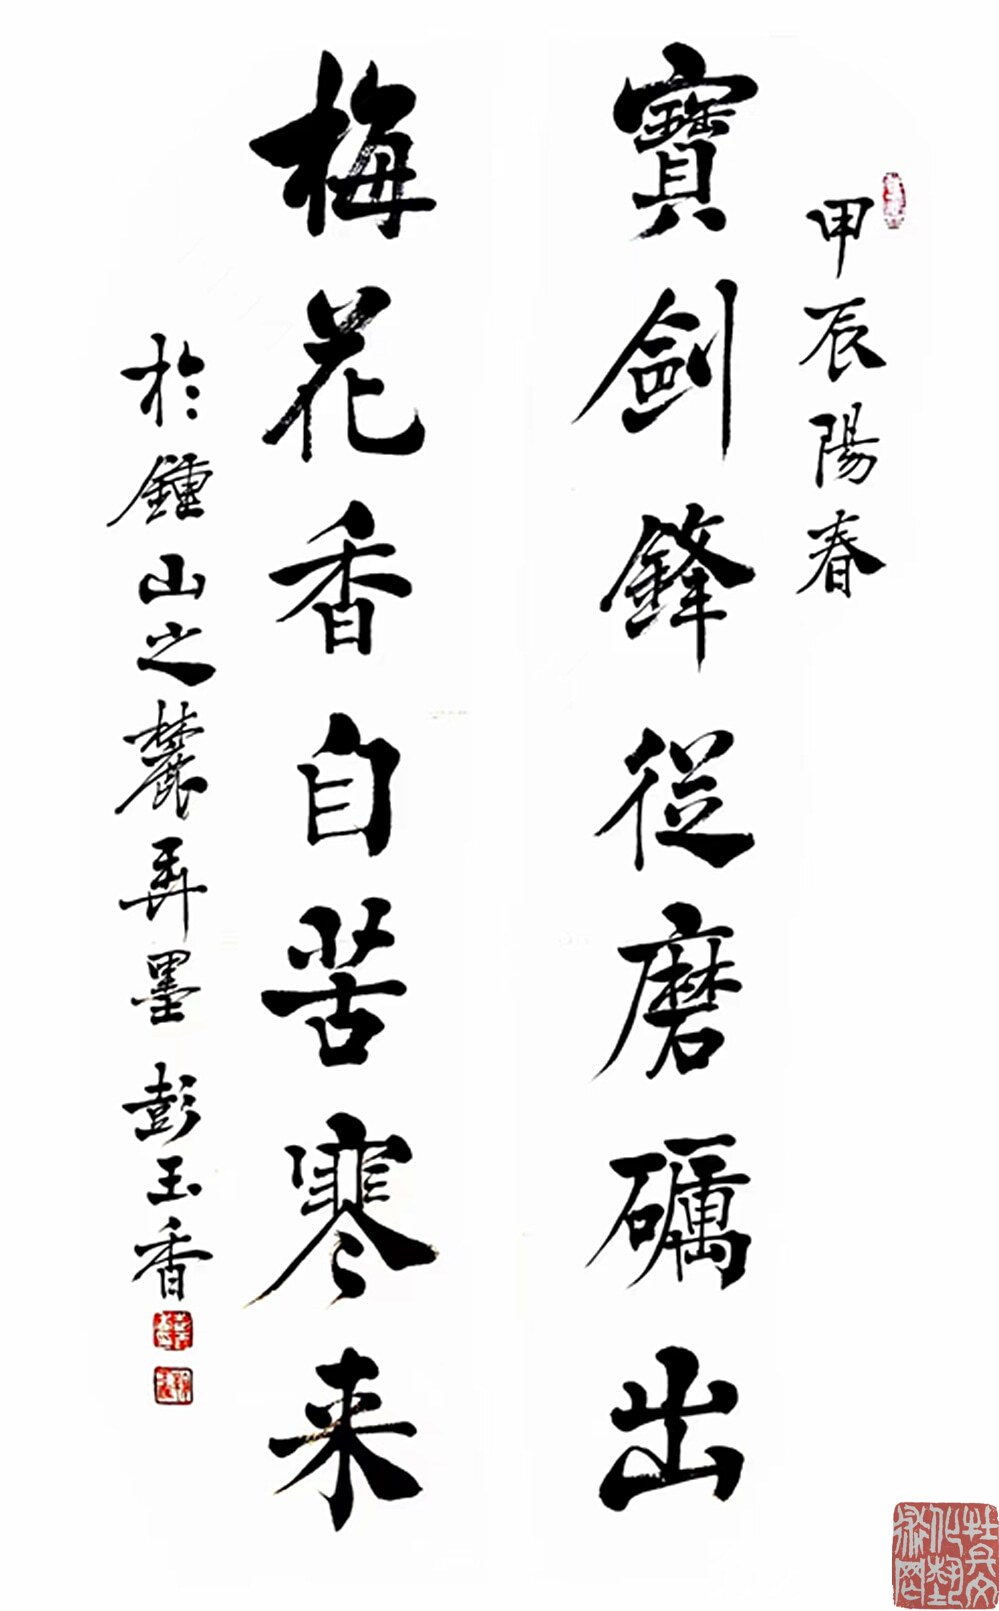 甲辰陽春
寶劍鋒從磨礪出
梅花香自苦寒来
於鍾山之麓弄墨 彭玉香